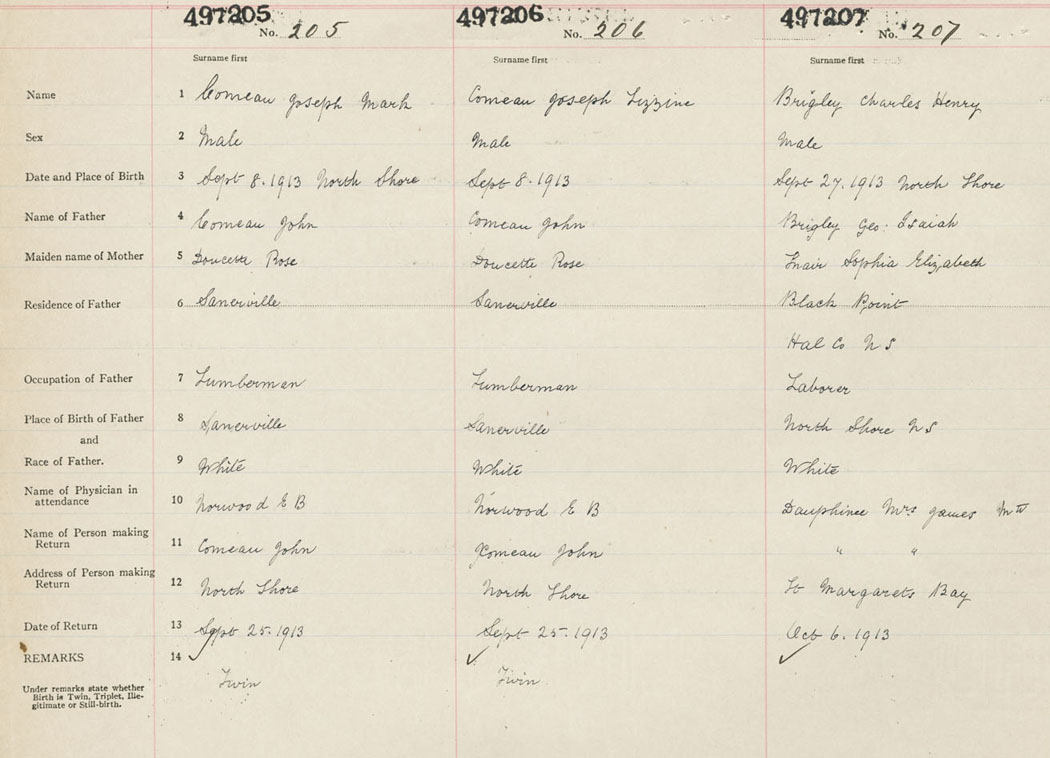 497205 497206 497207
No. 205 No. 206 No. 207
Surname first Surname first Surname first
Name 1 Comeau Joseph Mark Comeau Joseph Brigley Charles Henry
Sex 2 Male Male Male
Date and Place of Birth 3 Sept 8. 1913 North Shore Sept 8. 1913 Sept 27. 1913 North Shore
Name of Father 4 Comeau John Comeau John Brigley Geo. Isaiah
Maiden name of Mother 5 Doucette Rose Doucette Rose Sophia Elizabeth
Residence of Father 6 Sanerville Sanerville Black Point
Hal Co N S
Occupation of Father 7 Lumberman Lumberman Laborer
Place of Birth of Father 8 Sanerville Sanerville North Shore N S
and
Race of Father. 9 White White White
Name of Physician in
attendance 10 Norwood E B Norwood E B Dauphinee Mrs James
Name of Person making
Return 11 Comeau John Comeau John " "
Address of Person making
Return 12 North Shore North Shore St Margarets Bay
Date of Return 13 Sept 25. 1913 Sept 25. 1913 Oct 6. 1913
REMARKS 14
Twin Twin
Under remarks state whether
Birth is Twin, Triplet, Ille-
gitimate or Still-birth.